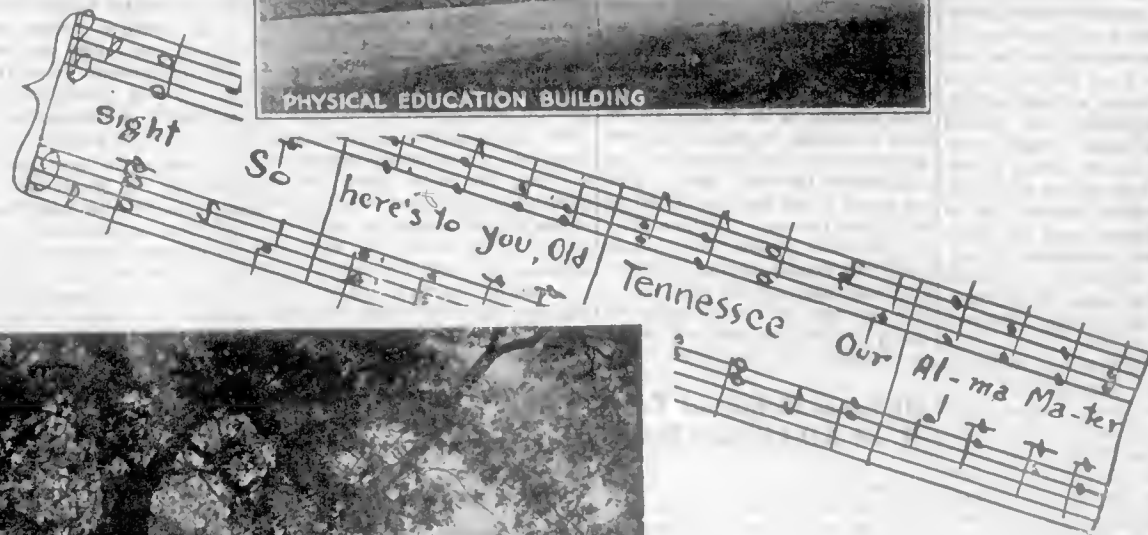 PHYSICAL EDUCATION BUILDING
sight
So here's to you, Old Tennessee Our Al-ma Ma-ter